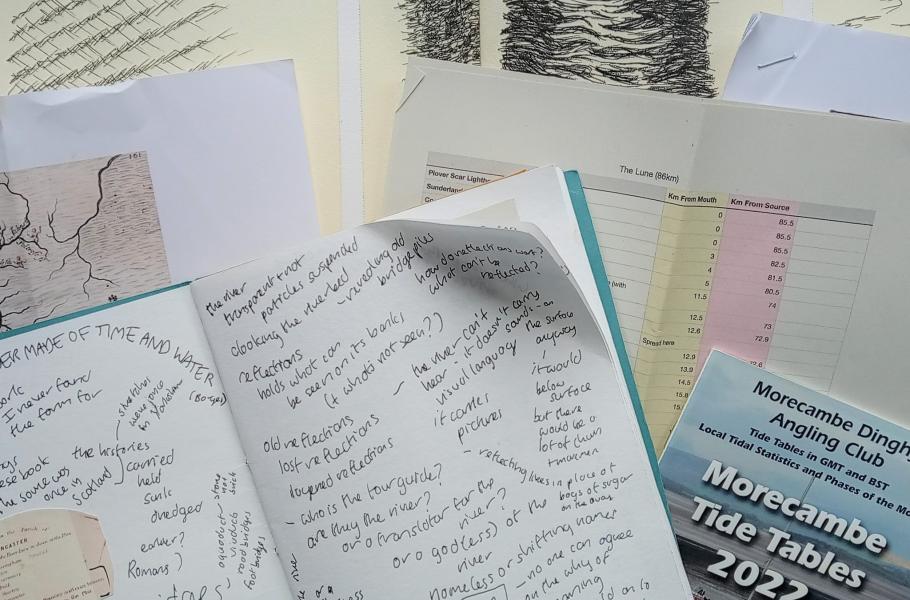 161
The Lune (86km)
Plover Scar Lighth
Sunderland
Km From Mouth
Km From Source
0
85.5
0
85.5
0
85.5
3
82.5
4
81.5
5
80.5
11.5
74
12.5
73
12.6
72.9
Spread here
12.9
13.9
14.5
15.8
(with
ER MADE OF TIME AND WATER
(Borges)
I never found
the form for
these book
the same was
one in
Scotland
the histories
carried
held
sunk
dredged
earlier?
Romans)
aqueduct
viaduct
road bridges
footbridges
stone
wood
NCASTER
the river
transparent + not
particles suspended
cloaking the riverbed
- revealing old
bridge pilus
how do reflections work?
what can't be
reflected?
reflections
holds what can
be seen on its banks
(+ who's not seen?)
old reflections
lost reflections
layered reflections
- the river can't
hear - it doesn't carry
visual language
it carries
pictures
sands - on
the surface
anyway
it would
below
surface
but there
would be a
lot of churn
+ movement
- reflecting likes in place of
bags of sugar
on the quay
- who is the tour guide?
are they the river?
or a translator for the
river?
or a god(ess) of the
river
nameless or shifting names
- no one can agree
on the why of
naming
Morecambe Dinghy
Angling Club
Tide Tables in GMT and BST
Local Tidal Statistics and Phases of the Mo
Morecambe
Tide Tables
2022